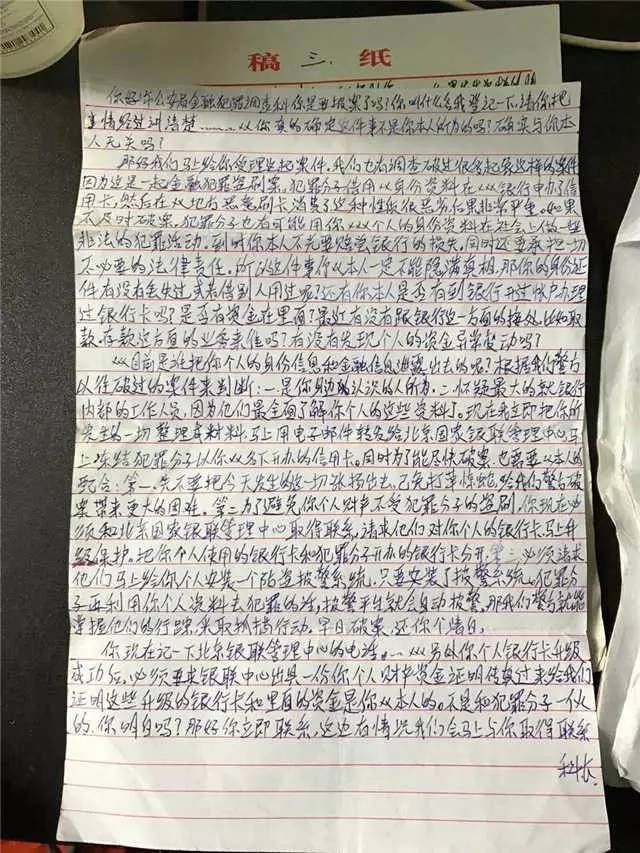 稿 三 纸
你好!××公安局金融犯罪调查科你是要报案了吗?你叫什么名我登记一下,请你把
事情经过讲清楚………××你真的确定这件事不是你本人所为的吗?确实与你本
人无关吗?
那好我们马上给你受理这起案件,我们也有调查破过很多起象这样的案件
因为这是一起金融犯罪盗刷案,犯罪分子借用××身份资料在××银行申办了信
用卡,然后在××地有恶意刷卡消费了这种性质很恶劣后果非常严重。如果
不及时破案,犯罪分子也有可能用你××个人的身份资料在社会上做一些
非法的犯罪活动,到时你本人不光要赔尝银行的损失,同时还要承担一切
不必要的法律责任。所以这件事你××本人一定不能隐满真相,那你的身份证
件有没有丢失过或者借别人用过呢?还有你本人是否有到银行开过帐户办理
过银行卡吗?是否有资金在里面?最近有没有跟银行这一方面的接处,比如取
款、存款这方面的业务来往吗?有没有发现个人的资金异常变动吗?
××目前是谁把你个人的身份信息和金融信息泄露出去的呢?根据我们警方
以往破过的案件来判断:一是你身边认识的人所为,二怀疑最大的就银行
内部的工作人员,因为他们最全面了解你个人的这些资料了。现在我立即把你所
发生的一切整理成材料马上用电子邮件转发给北京国家银联管理中心马
上冻结犯罪分子以你××名下开办的信用卡。同时为了能尽快破案也需要××本人的
配合:第一,先不要把今天发生的这一切张扬出去,已免打草惊蛇给我们警方破
案带来更大的困难。第二为了避免你个人财产不受犯罪分子的盗刷,你现在必
须和北京国家银联管理中心取得联系,请求他们对你个人的银行卡马上升
级保护。把你个人使用的银行卡和犯罪分子开办的银行卡分开,第三必须请求
他们马上给你个人安装一个防盗报警系统,只要安装了报警系统××犯罪分
子再利用你个人资料去犯罪的话,报警平台就会自动报警,那我们警方就能
掌握他们的行踪,采取抓捕行动,早日破案,还你个清白。
你现在记一下北京银联管理中心的电话。…××另外你个人银行卡升级
成功后,必须要求银联中心出具一份你个人财产资金证明传真过来给我们
证明这些升级的银行卡和里面的资金是你××本人的。不是和犯罪分子一伙
的,你明白吗?那好你立即联系,这边有情况我们会马上与你取得联系
科长